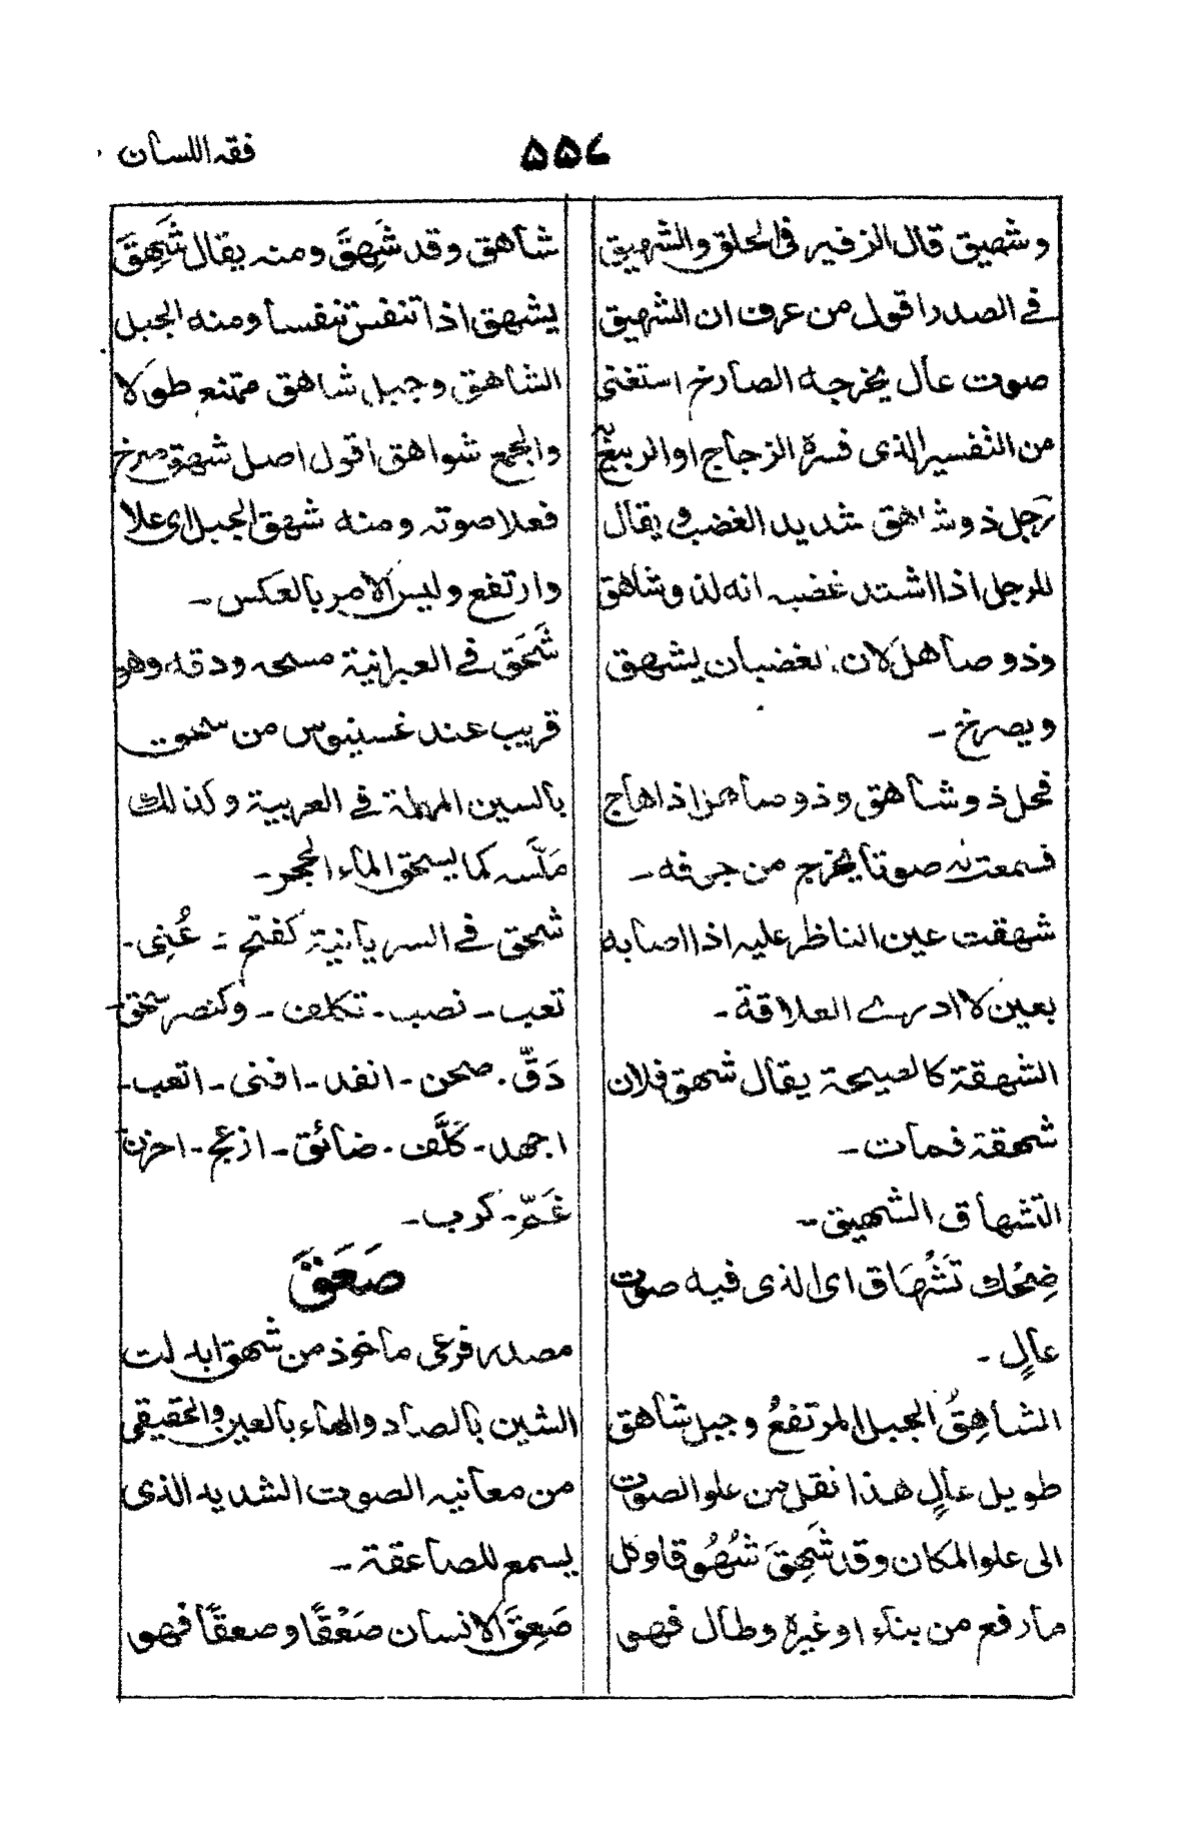 فقه اللسان
۵۵۴
وشهيق قال الزفير فى الحلق والشهيق
فى الصدر اقول من عرف ان الشهيق
صوت عال يخرجه الصارخ استغنى
من التفسير الذى فسره الزجاج او الربيع
رجل ذو شاهق شديد الغضب ويقال
للرجل اذا اشتد غضبه انه لذو شاهق
وذو صاهل لان الغضبان يشهق
ويصرخ ـ
فحل ذو شاهق وذو صاهل اذا هاج
فسمعت له صوتا يخرج من جوفه ـ
شهقت عين الناظر عليه اذا اصابه
بعين لا ادرى العلاقة ـ
الشهقة كالصيحة يقال شهق فلان
شهقة فمات ـ
التشهاق الشهيق ـ
ضِحْك تَشْهَاق اى الذى فيه صوت
عالٍ ـ
الشاهِقُ الجبل المرتفعُ وجبل شاهق
طويل عالٍ هذا نقل من علو الصوت
الى علو المكان وقد شَهِقَ شُهُوقا وكل
ما رفع من بناء او غيره وطال فهو
شاهق وقد شَهِقَ ومنه يقال شَهِقَ
يشهق اذا تنفس تنفسا ومنه الجبل
الشاهق وجبل شاهق ممتنع طولا
والجمع شواهق اقول اصل شهق صرخ
فعلا صوته ومنه شهق الجبل اى علا
وارتفع وليس الامر بالعكس ـ
شَحَق فى العبرانية مسحه ودقه وهو
قريب عند غسينوس من سحق
بالسين المهملة فى العربية وكذلك
مَلَّسه كما يسحق الماء الحجر ـ
شحق فى السريانية كفتح = عُنِى ـ
تعب ـ نصب ـ تكلف ـ وكنصر سحق ـ
دَقّ ـ صحن ـ انفد ـ افنى ـ اتعب ـ
اجهد ـ كَلَّف ـ ضائق ـ ازعج ـ احزن
غَمّ ـ كرب ـ
صَعَقَ
مصدر فرعى ماخوذ من شهق ابدلت
الشين بالصاد والهاء بالعين والحقيقى
من معانيه الصوت الشديد الذى
يسمع للصاعقة ـ
صَعِقَ الانسان صَعْقًا وصعقًا فهو